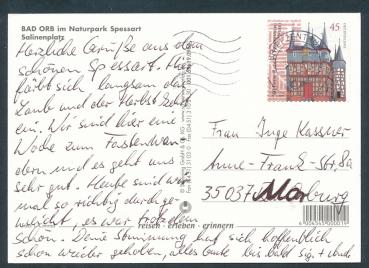 BAD ORB im Naturpark Spessart
Salinenplatz
Herzliche Grüße aus dem
schönen Spessart. Hier
färbt sich langsam das
Laub und der Herbst zieht
ein. Wir sind hier eine
Woche zum Fastenwan-
dern und es geht uns
sehr gut. Heute sind wir
mal so richtig durchge-
weicht, es war trotzdem
schön. Deine Stimmung hat sich hoffentlich
schon wieder gehoben, alles Gute bis bald
45
Frau Inge Kassner
Anne-Frank-Str. 8a
35037 Marburg
reisen · erleben · erinnern